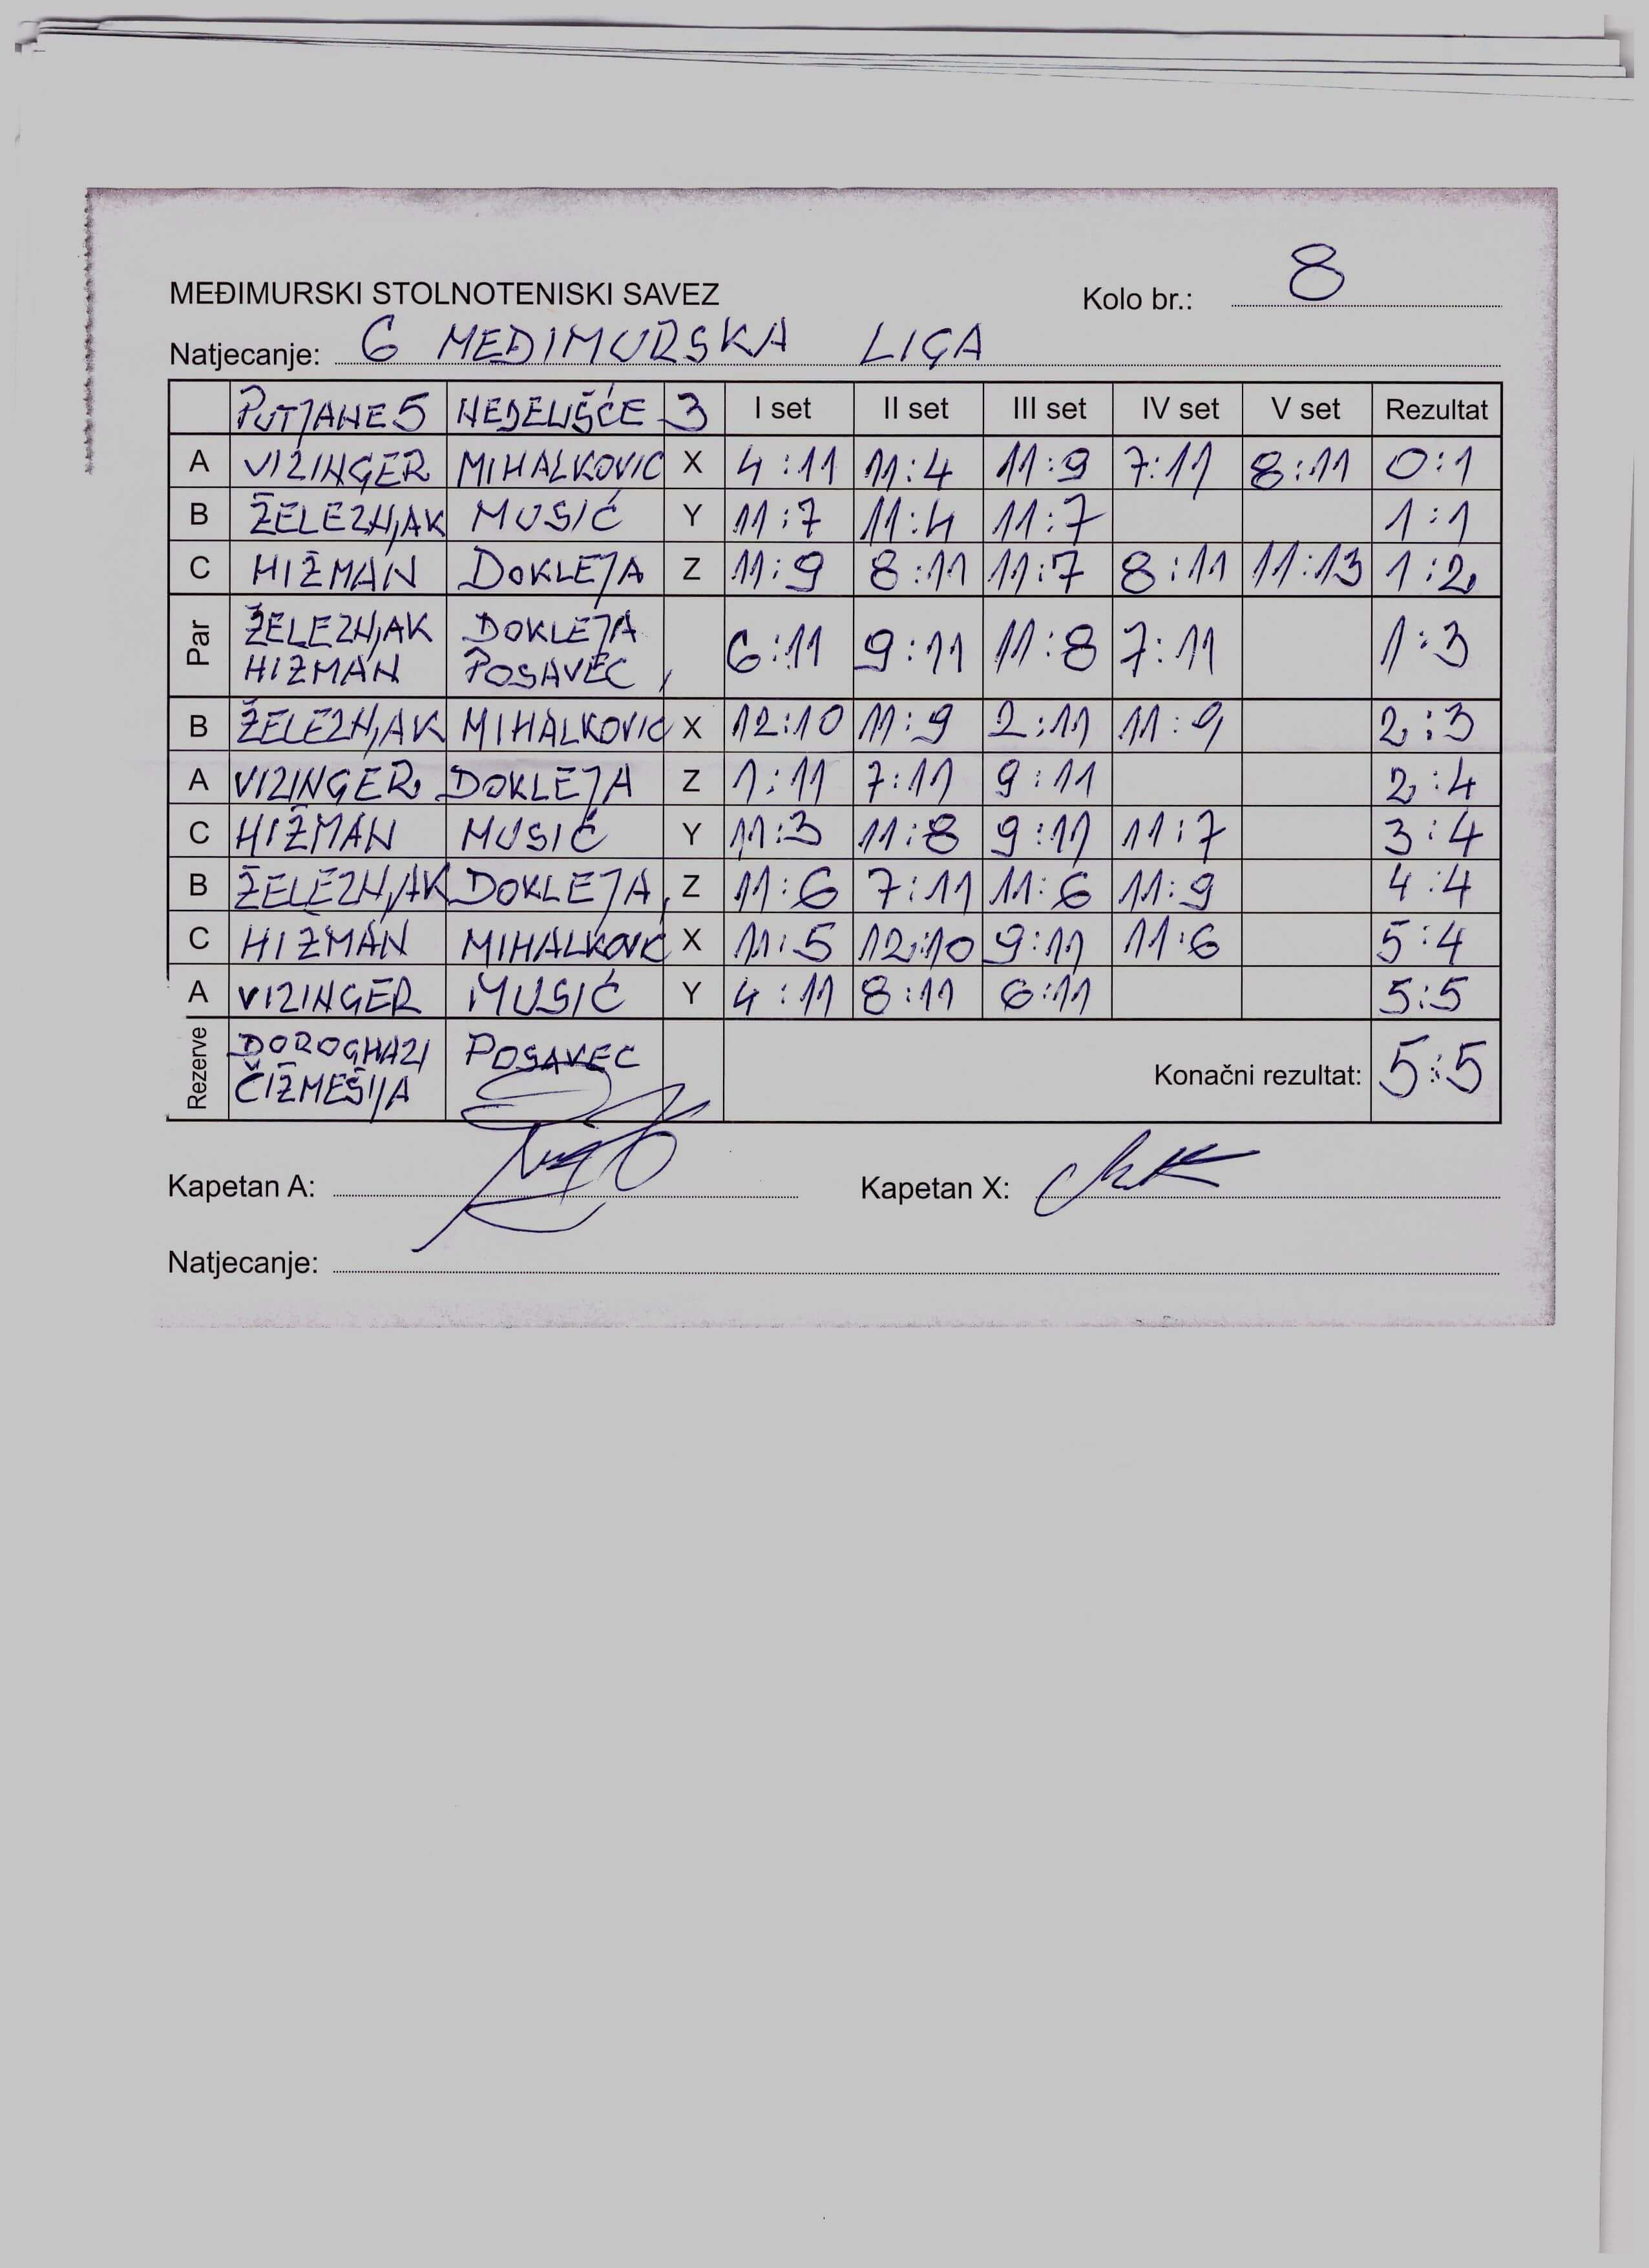 MEĐIMURSKI STOLNOTENISKI SAVEZ Kolo br.: 8
Natjecanje: 6 MEĐIMURSKA LIGA
PUTJANE 5 NEDELIŠĆE 3 I set II set III set IV set V set Rezultat
A VIZINGER MIHALKOVIC X 4:11 11:4 11:9 7:11 8:11 0:1
B ŽELEZNJAK MUSIĆ Y 11:7 11:4 11:7 1:1
C HIŽMAN DOKLEJA Z 11:9 8:11 11:7 8:11 11:13 1:2
Par ŽELEZNJAK DOKLEJA 6:11 9:11 11:8 7:11 1:3
HIŽMAN POSAVEC
B ŽELEZNJAK MIHALKOVIC X 12:10 11:9 2:11 11:9 2:3
A VIZINGER DOKLEJA Z 1:11 7:11 9:11 2:4
C HIŽMAN MUSIĆ Y 11:3 11:8 9:11 11:7 3:4
B ŽELEZNJAK DOKLEJA Z 11:6 7:11 11:6 11:9 4:4
C HIŽMAN MIHALKOVIC X 11:5 12:10 9:11 11:6 5:4
A VIZINGER MUSIĆ Y 4:11 8:11 6:11 5:5
Rezerve DOROGHAZI POSAVEC Konačni rezultat: 5:5
ČIŽMEŠIJA
Kapetan A: Kapetan X:
Natjecanje: